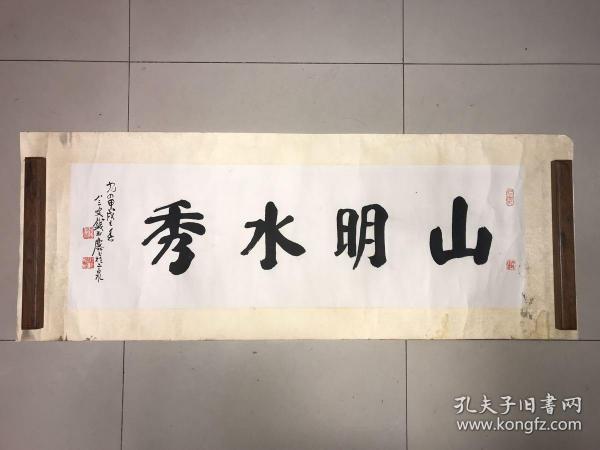 山明水秀
九四甲戌春
孔夫子旧書网
www.kongfz.com